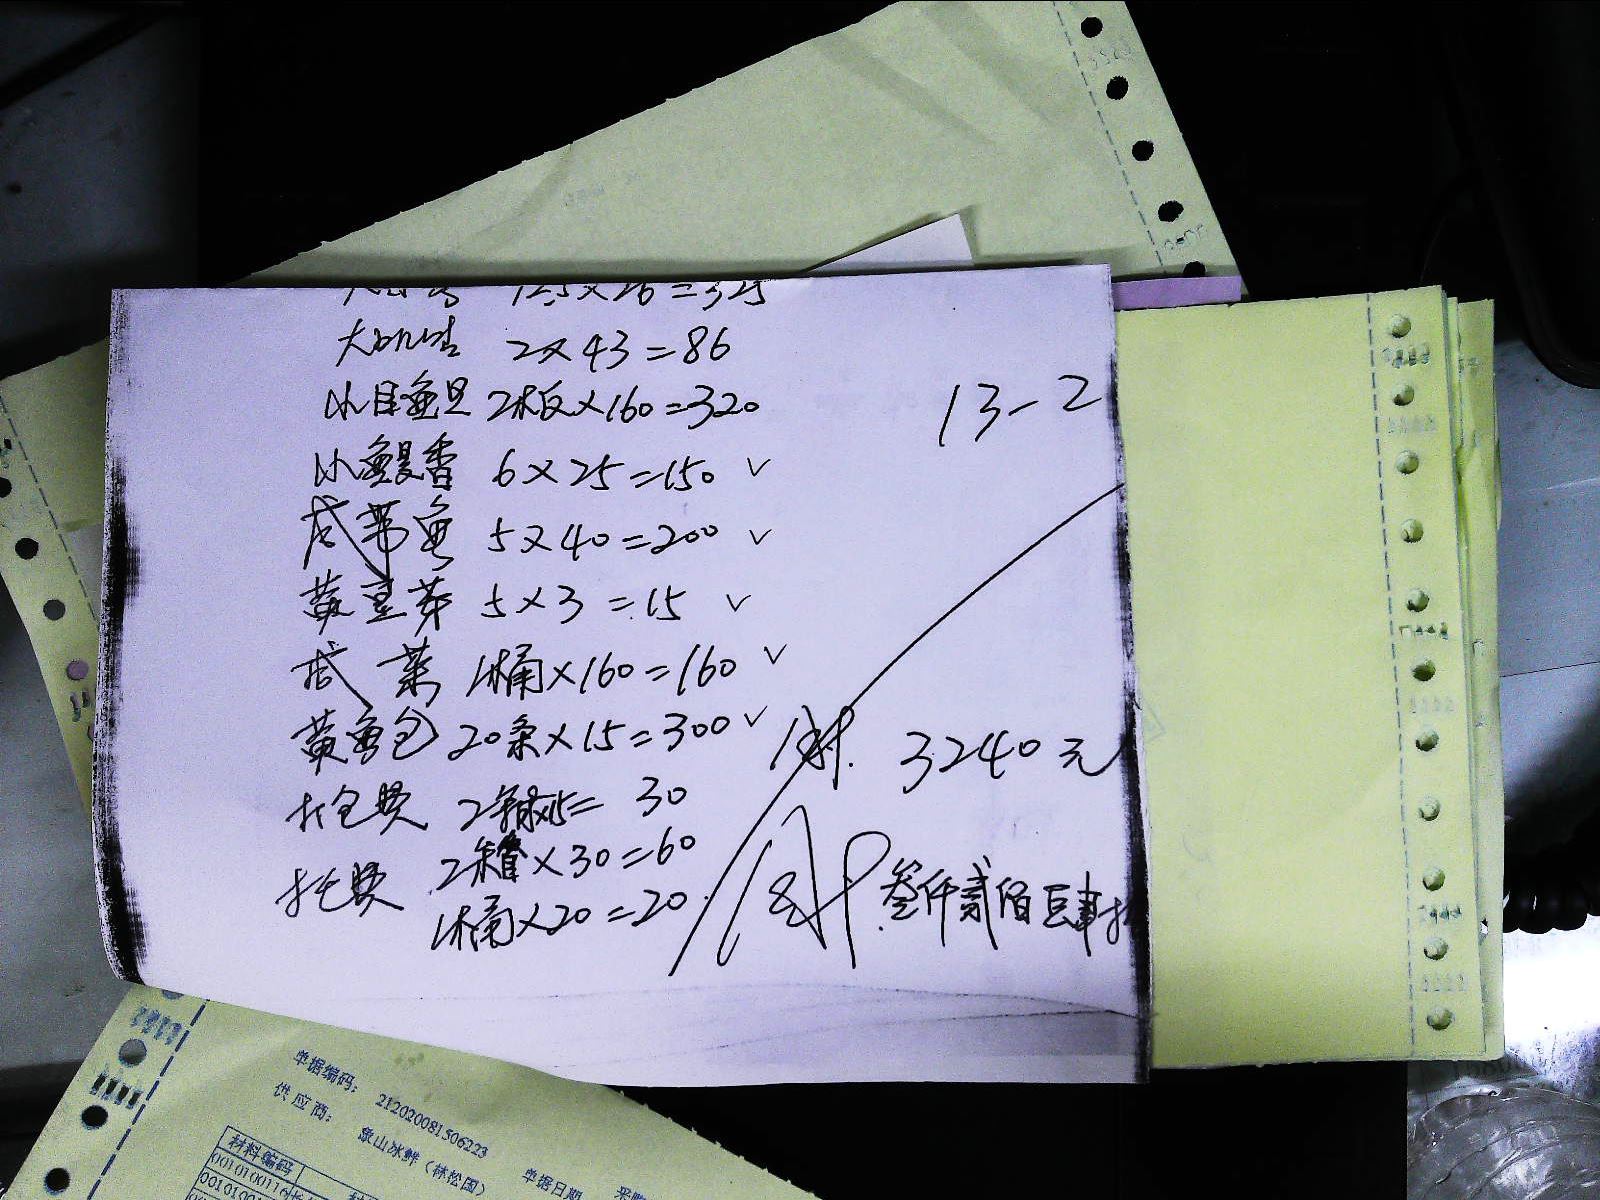 12.5×26=325
2×43=86
小目鱼 2板×160=320
13-2
小鳗香 6×25=150 √
咸带鱼 5×40=200 √
黄豆芽 5×3=15 √
咸菜 1桶×160=160 √
黄鱼包 20条×15=300 √
3240元
打包费 2箱×15=30
托费 2箱×30=60
叁仟贰佰肆拾
1桶×20=20
单据编码: 212020081506223
供应商: 象山冰鲜（林松国）
单据日期
材料编码